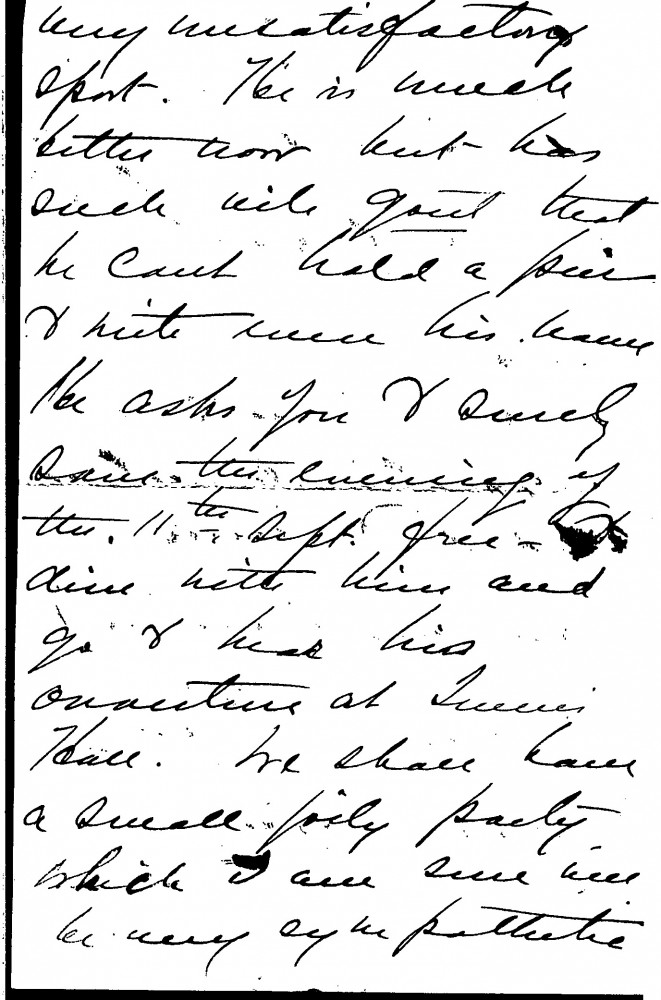 very unsatisfactory
spot. He is much
better now but has
such vile gout that
he cant hold a pen
& write even his name
He asks you & surely
save the evening of
the 11th Sept. free - &
dine with him and
go & hear his
overture at Queens
Hall. We shall have
a small jolly party
which I am sure will
be very sympathetic